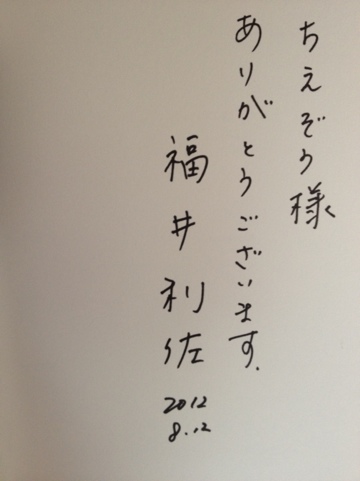 ちえぞう様
ありがとうございます.
福井利佐
2012
8.12